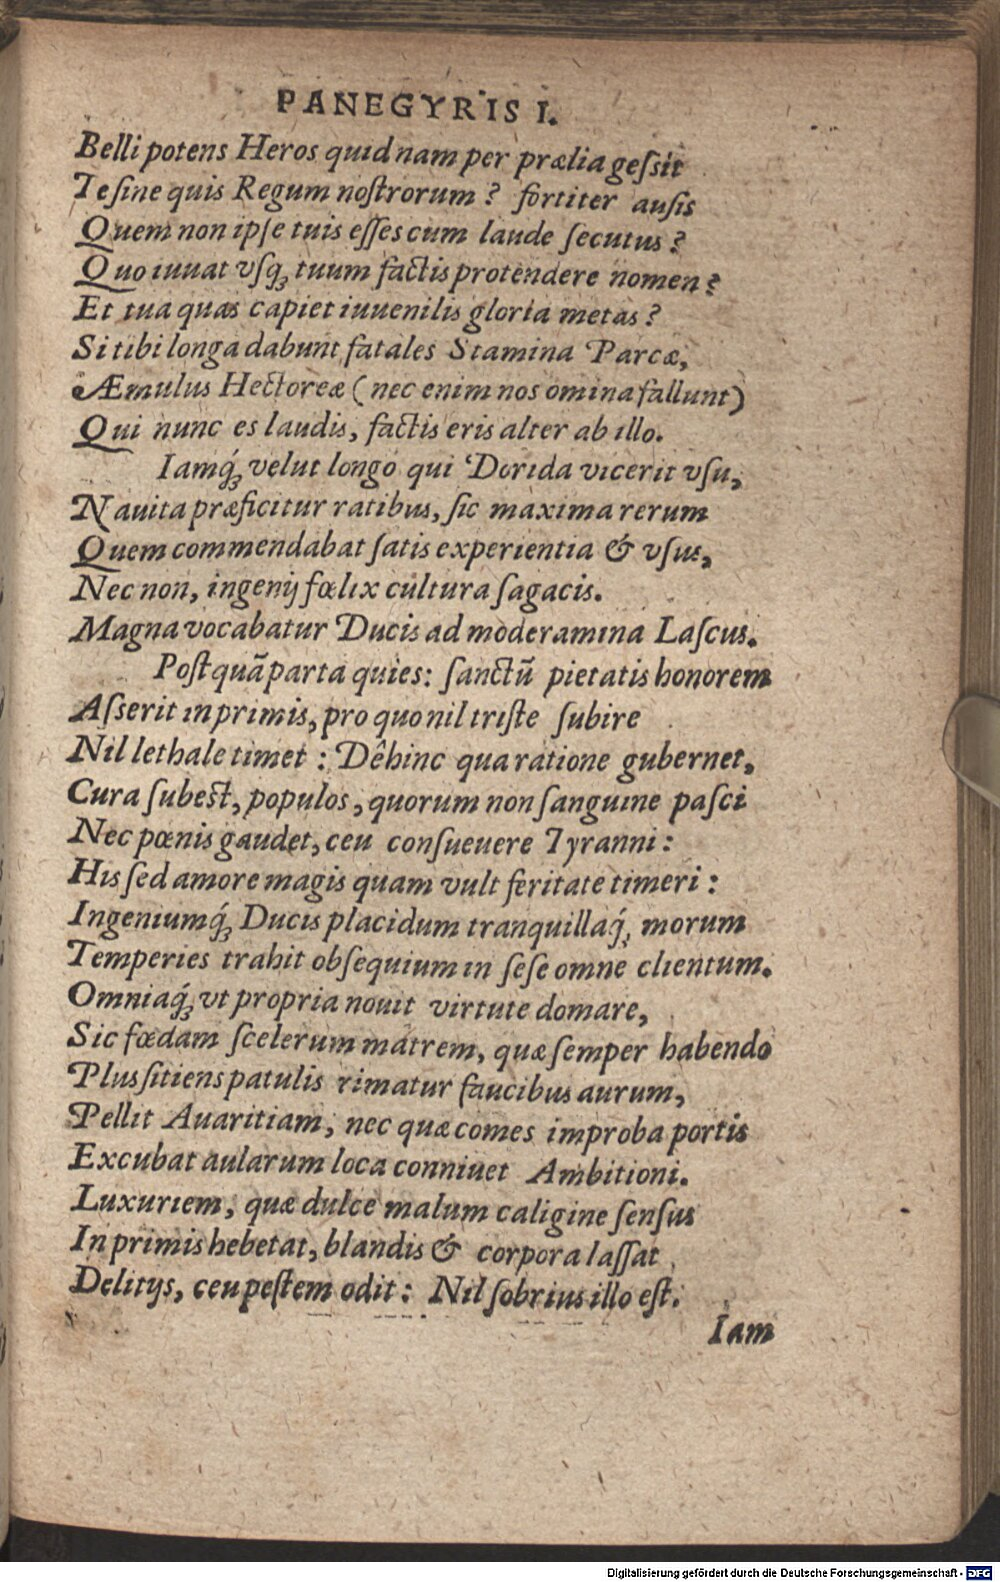 PANEGYRIS I.
Belli potens Heros quid nam per prælia geſsit
Te ſine quis Regum noſtrorum? fortiter auſis
Quem non ipſe tuis eſſes cum laude ſecutus?
Quo iuuat vſq́ꝫ tuum factis protendere nomen?
Et tua quas capiet iuuenilis gloria metas?
Si tibi longa dabunt fatales Stamina Parcæ,
Æmulus Hectoreæ (nec enim nos omina fallunt)
Qui nunc es laudis, factis eris alter ab illo.
Iamq́ꝫ velut longo qui Dorida vicerit vſu,
Nauita præficitur ratibus, ſic maxima rerum
Quem commendabat ſatis experientia & vſus,
Nec non, ingenij fœlix cultura ſagacis.
Magna vocabatur Ducis ad moderamina Laſcus.
Poſtquã parta quies: ſanctũ pietatis honorem
Aſſerit inprimis, pro quo nil triſte ſubire
Nil lethale timet: Dêhinc qua ratione gubernet,
Cura ſubeſt, populos, quorum non ſanguine paſci
Nec pœnis gaudet, ceu conſueuere Tyranni:
His ſed amore magis quam vult feritate timeri:
Ingeniumq́ꝫ Ducis placidum tranquillaq́ꝫ morum
Temperies trahit obſequium in ſeſe omne clientum.
Omniaq́ꝫ vt propria nouit virtute domare,
Sic fœdam ſcelerum matrem, quæ ſemper habendo
Plus ſitiens patulis rimatur faucibus aurum,
Pellit Auaritiam, nec quæ comes improba portis
Excubat aularum loca conniuet Ambitioni.
Luxuriem, quæ dulce malum caligine ſenſus
Inprimis hebetat, blandis & corpora laſſat
Delitijs, ceu peſtem odit: Nil ſobrius illo eſt.
Iam
Digitalisierung gefördert durch die Deutsche Forschungsgemeinschaft - DFG